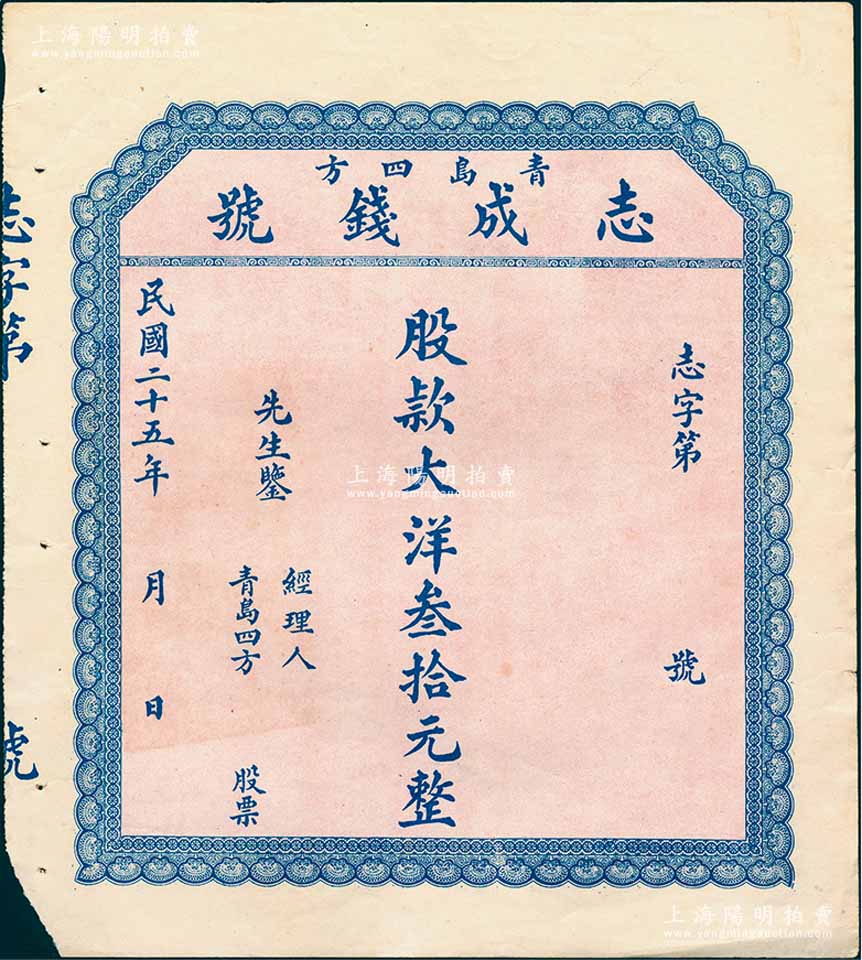 上海陽明拍賣
www.yangmingauction.com
青島四方
志成錢號
志字第 號
股款大洋叁拾元整
經理人
先生鑒
青島四方 股票
民國二十五年 月 日
志字第 號
上海陽明拍賣
www.yangmingauction.com
上海陽明拍賣
www.yangmingauction.com